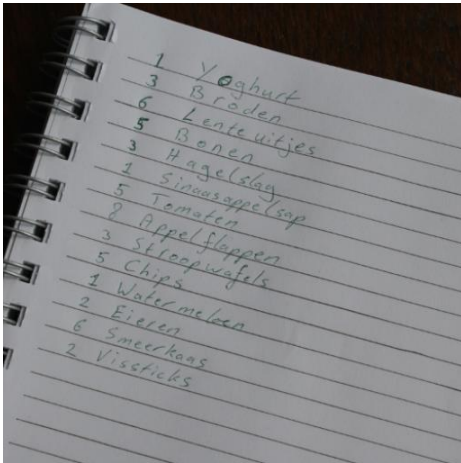 1 Yoghurt
3 Broden
6 Lenteuitjes
5 Bonen
3 Hagelslag
1 Sinaasappelsap
5 Tomaten
8 Appelflappen
3 Stroopwafels
5 Chips
1 Watermeloen
2 Eieren
6 Smeerkaas
2 Vissticks